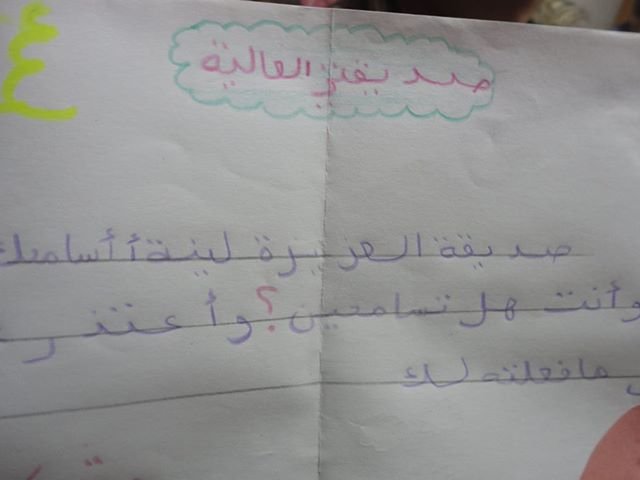 صديقتي الغالية
صديقة العزيزة لينة أ أسامحك
وأنت هل تسامحين؟ وأعتذر
مافعلته لك